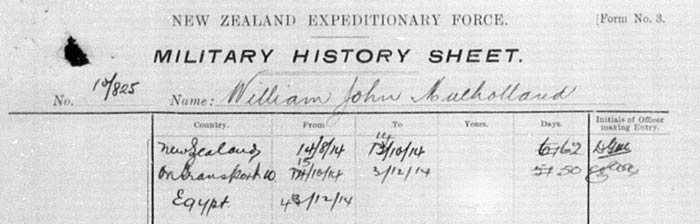 NEW ZEALAND EXPEDITIONARY FORCE. [Form No. 3.
MILITARY HISTORY SHEET.
No. 10/825 Name: William John Mulholland
Country. From To Years. Days. Initials of Officer making Entry.
New Zealand 14/8/14 14/10/14 62
On Transport 10 15/10/14 3/12/14 50
Egypt 4/12/14